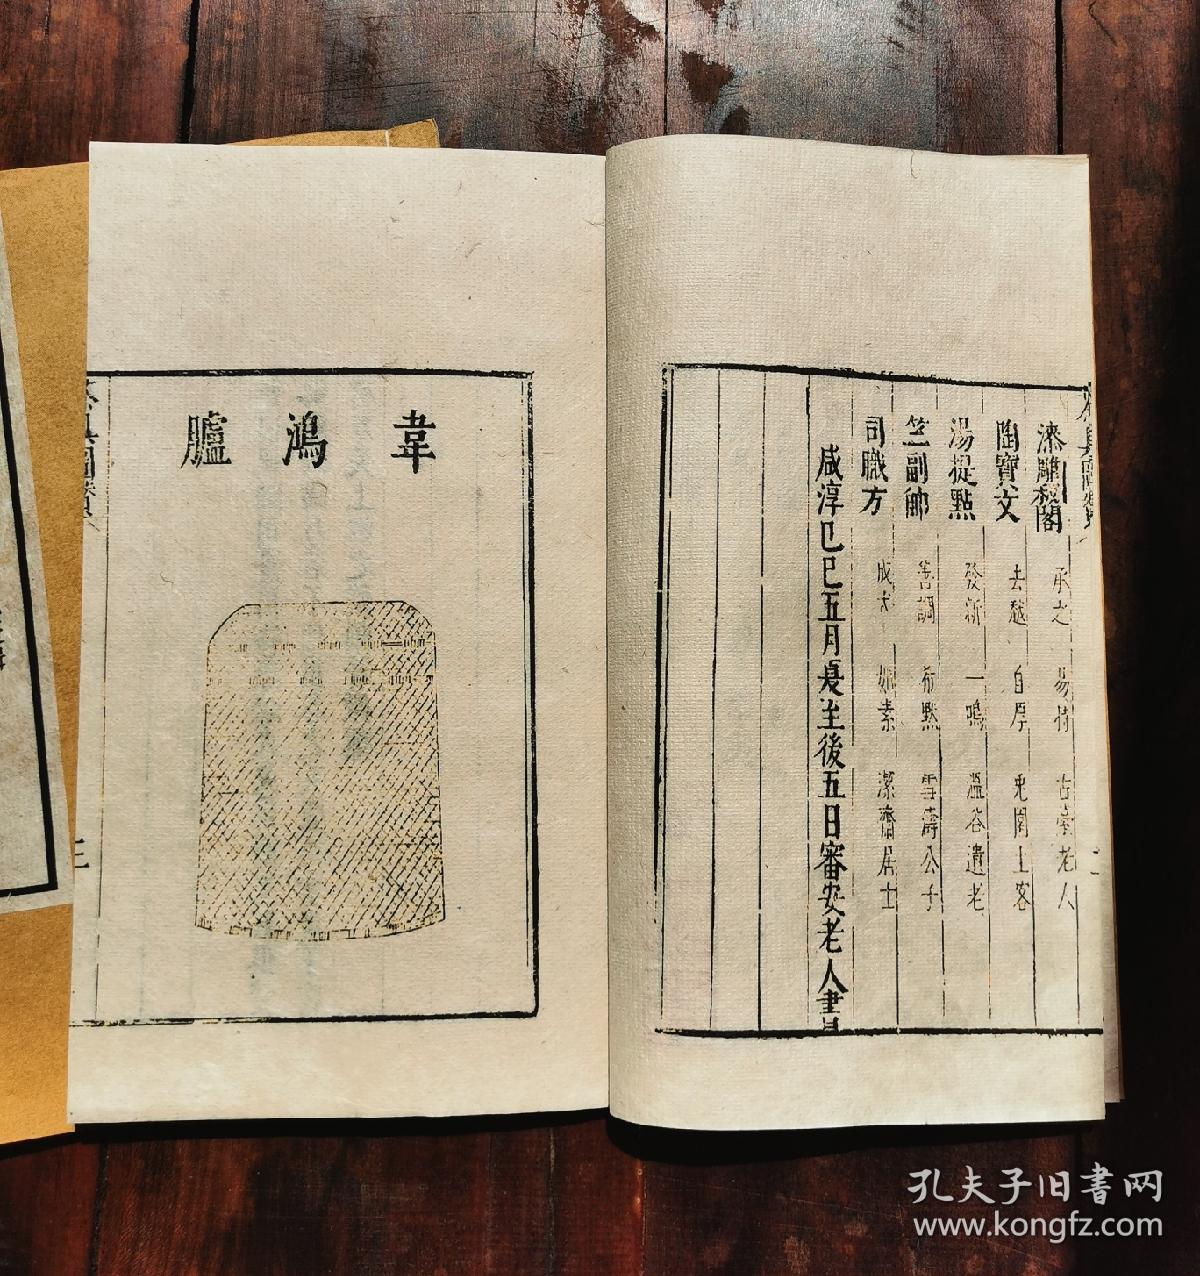 漆雕秘閣 承之 易持 古臺老人
陶寶文 去越 自厚 兎園上客
湯提點 發新 一鳴 溫谷遺老
竺副帥 善調 希點 雪濤公子
司職方 成式 如素 潔齋居士
咸淳己巳五月夏至後五日審安老人書
韋鴻臚
三
二
孔夫子旧書网
www.kongfz.com